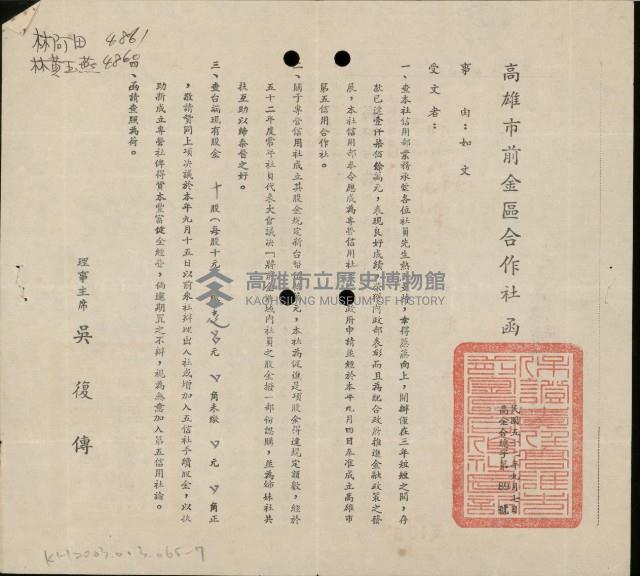 林阿田 4861
林黃玉燕 4860
高雄市前金區合作社 函
民國五十二年九月七日
高金合總字第89號
事由：如文
受文者：
一、查本社信用部業務承蒙各位社員先生熱心支援，幸得蒸蒸向上，開辦僅在三年短短之間，存
款已達壹仟柒佰餘萬元，表現良好成績，承獲內政部表彰而且為配合政府推進金融政策之發
展，本社信用部奉令應成為專營信用社，政府申請並經於本年九月四日奉准成立高雄市
第五信用合作社。
二、關于專營信用社成立其股金規定新台幣元，本社為促進是項股金得達規定額數，經於
五十二年度常年社員代表大會議決「將前金區域內社員之股金撥一部份認購，並為姊妹社共
扶互助以締泰晉之好。
三、查台端現有股金 十股（每股十元）元角未繳元角正
，敬請贊同上項決議於本年九月十五日以前來社辦理出入社或增加入五信社手續股金，以扶
助新成立專營社俾得資本豐富健全經營，倘逾期置之不辦，視為無意加入第五信用社論。
四、函請查照為荷。
理事主席 吳復傳
高雄市立歷史博物館
KAOHSIUNG MUSEUM OF HISTORY
KH2003.003.065-7